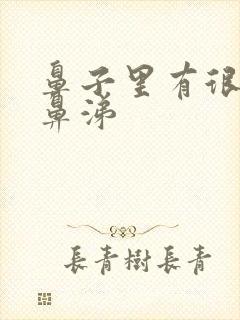 鼻子里有很
鼻涕
長青樹長青